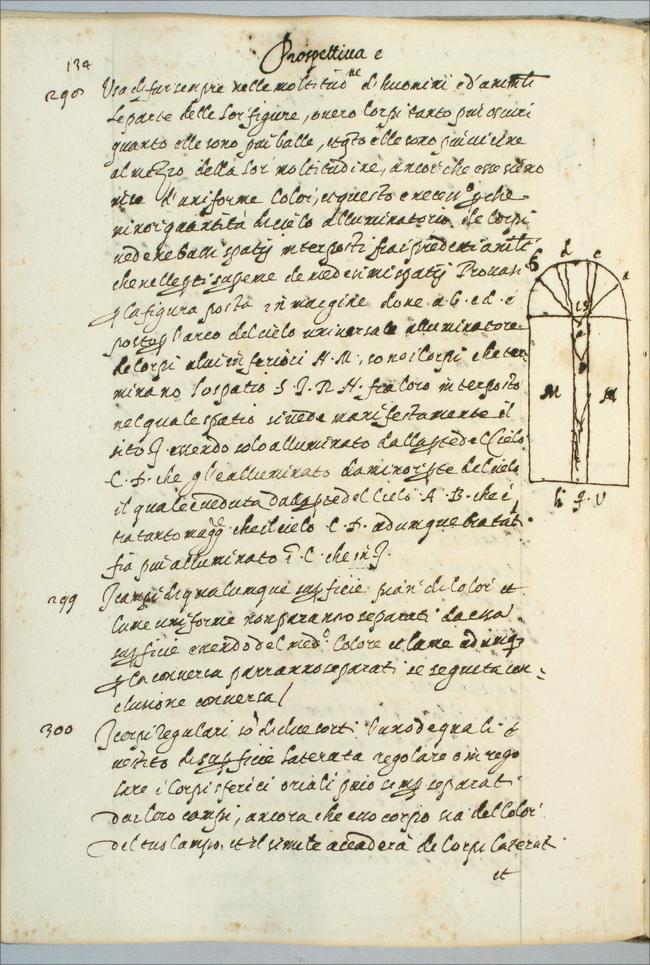 Prospettiua e
134
298 Usa di far sempre nelle moltitudne d'huomini ed'animli
le parte delle lor figure, ouero corpi tanto piu oscuri
quanto elle sono piu basse, et qto elle sono piu uicine
al mezzo della lor moltitudine, ancor che esse sieno
d'uniforme color, et questo e necess° che
minor quantità di cielo alluminatorio de corpi
uede ne bassi spatij interposti fra i predetti animli
che nelle suppreme de medesimi spatij Prouasi
p la figura posta in margine doue a. b. c. d. è
posto p l'arco del cielo uniuersale alluminatore
de corpi a lui inferiori N. M., sono i corpi che ter
minano lo spatio S. T. R. H. fra loro interposto
nel quale spatio si uede manifestamente il
sito essendo solo alluminato dalla pte del Cielo
C. D. che gl'e alluminato da minor pte del cielo
il quale è ueduta dalla pte del Cielo A. B. che è
tra tanto magg che il cielo C. D. adunque
fia piu alluminato C. che in
299 I campi di qualunque supficie pian di color et
lume uniforme non paranno separati da essa
supficie essendo del med° colore et lume adunq
p la conuersa parranno separati se seguita con=
clusione conuersa /
300 I corpi regulari so di due sorti l'uno de quali è
uestito di supficie laterata regolare o irrego
lare i corpi sferici o uali semp separat
da i loro campi, ancora che esso corpo sia del color
del suo campo, et il simile accaderà de corpi laterati
et
b d c a
M M
h I V